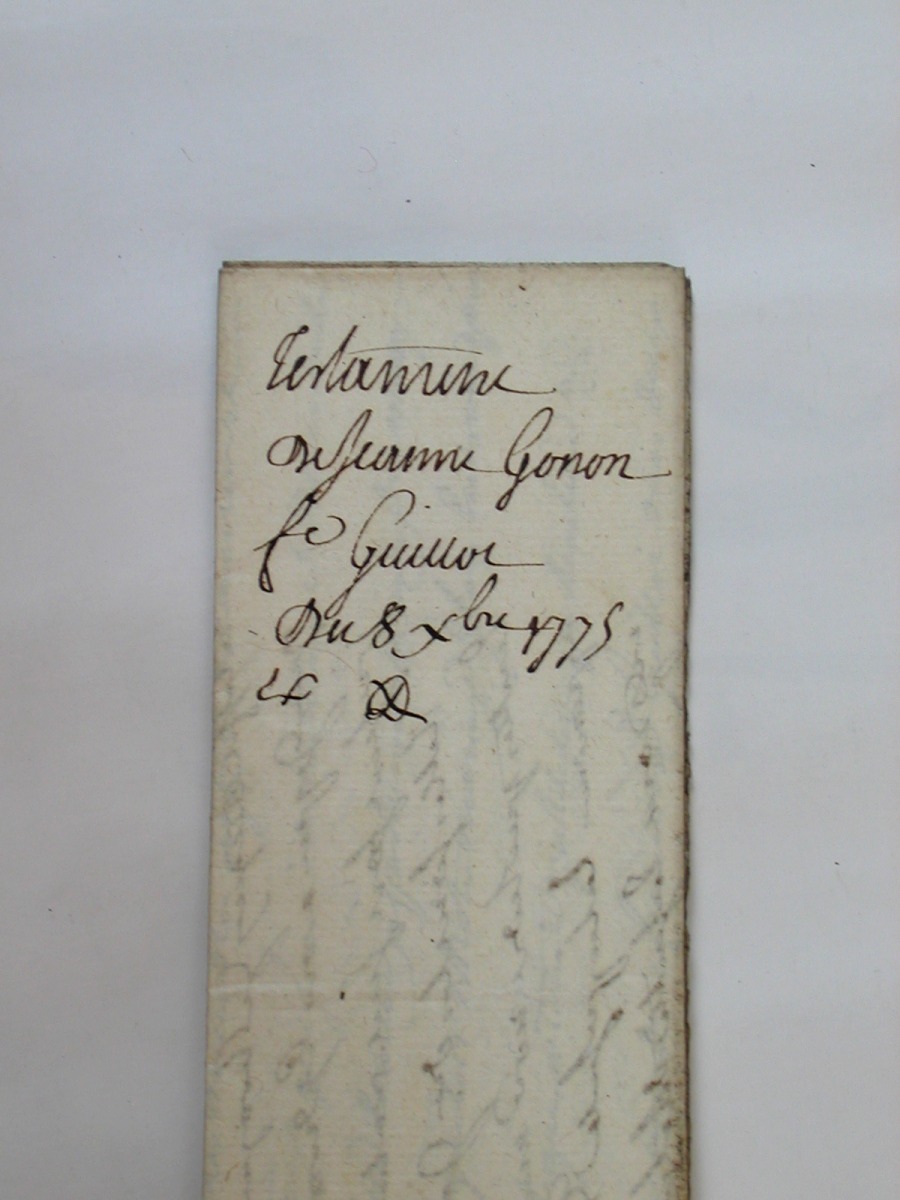 Testament
de Jeanne Gonon
fe Guillot
du 8 xbre 1775